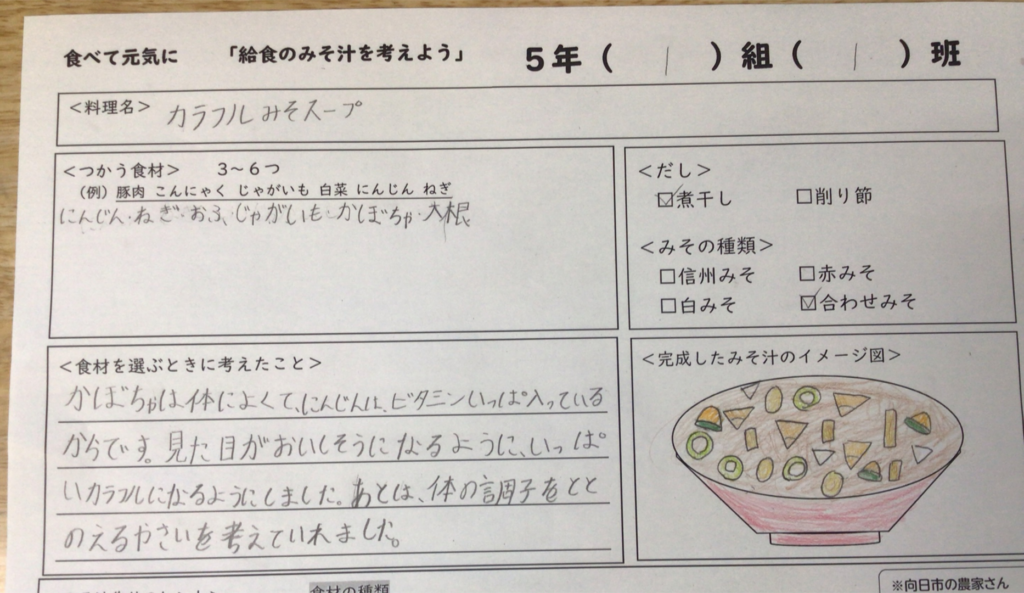 食べて元気に 「給食のみそ汁を考えよう」 5年( 1 )組( 1 )班
<料理名> カラフルみそスープ
<つかう食材> 3~6つ
(例)豚肉 こんにゃく じゃがいも 白菜 にんじん ねぎ
にんじん・ねぎ・おふ、じゃがいも・かぼちゃ・大根
<だし>
☑煮干し □削り節
<みその種類>
□信州みそ □赤みそ
□白みそ ☑合わせみそ
<食材を選ぶときに考えたこと>
かぼちゃは体によくて、にんじんは、ビタミンいっぱい入っている
からです。見た目がおいしそうになるように、いっぱ
いカラフルになるようにしました。あとは、体の調子をとと
のえるやさいを考えていれました。
<完成したみそ汁のイメージ図>
食材の種類
※向日市の農家さん